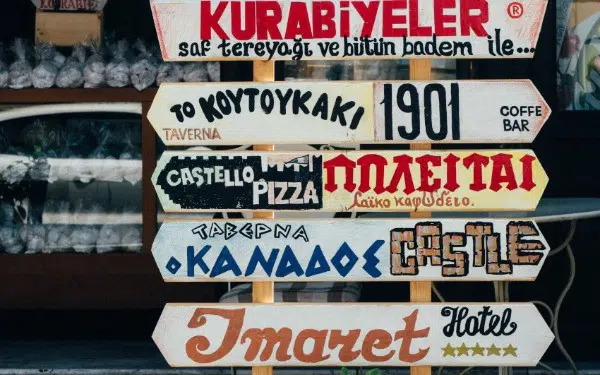 KURABİYELER ®
saf tereyağı ve bütün badem ile...
ΤΟ ΚΟΥΤΟΥΚΑΚΙ
TAVERNA
1901
COFFE
BAR
CASTELLO
PIZZA
ΠΠΛΕΙΤΑΙ
Λαϊκο καφωδειο.
ΤΑΒΕΡΝΑ
Ο ΚΑΝΑΔΟΣ
CASTLE
Imaret
Hotel